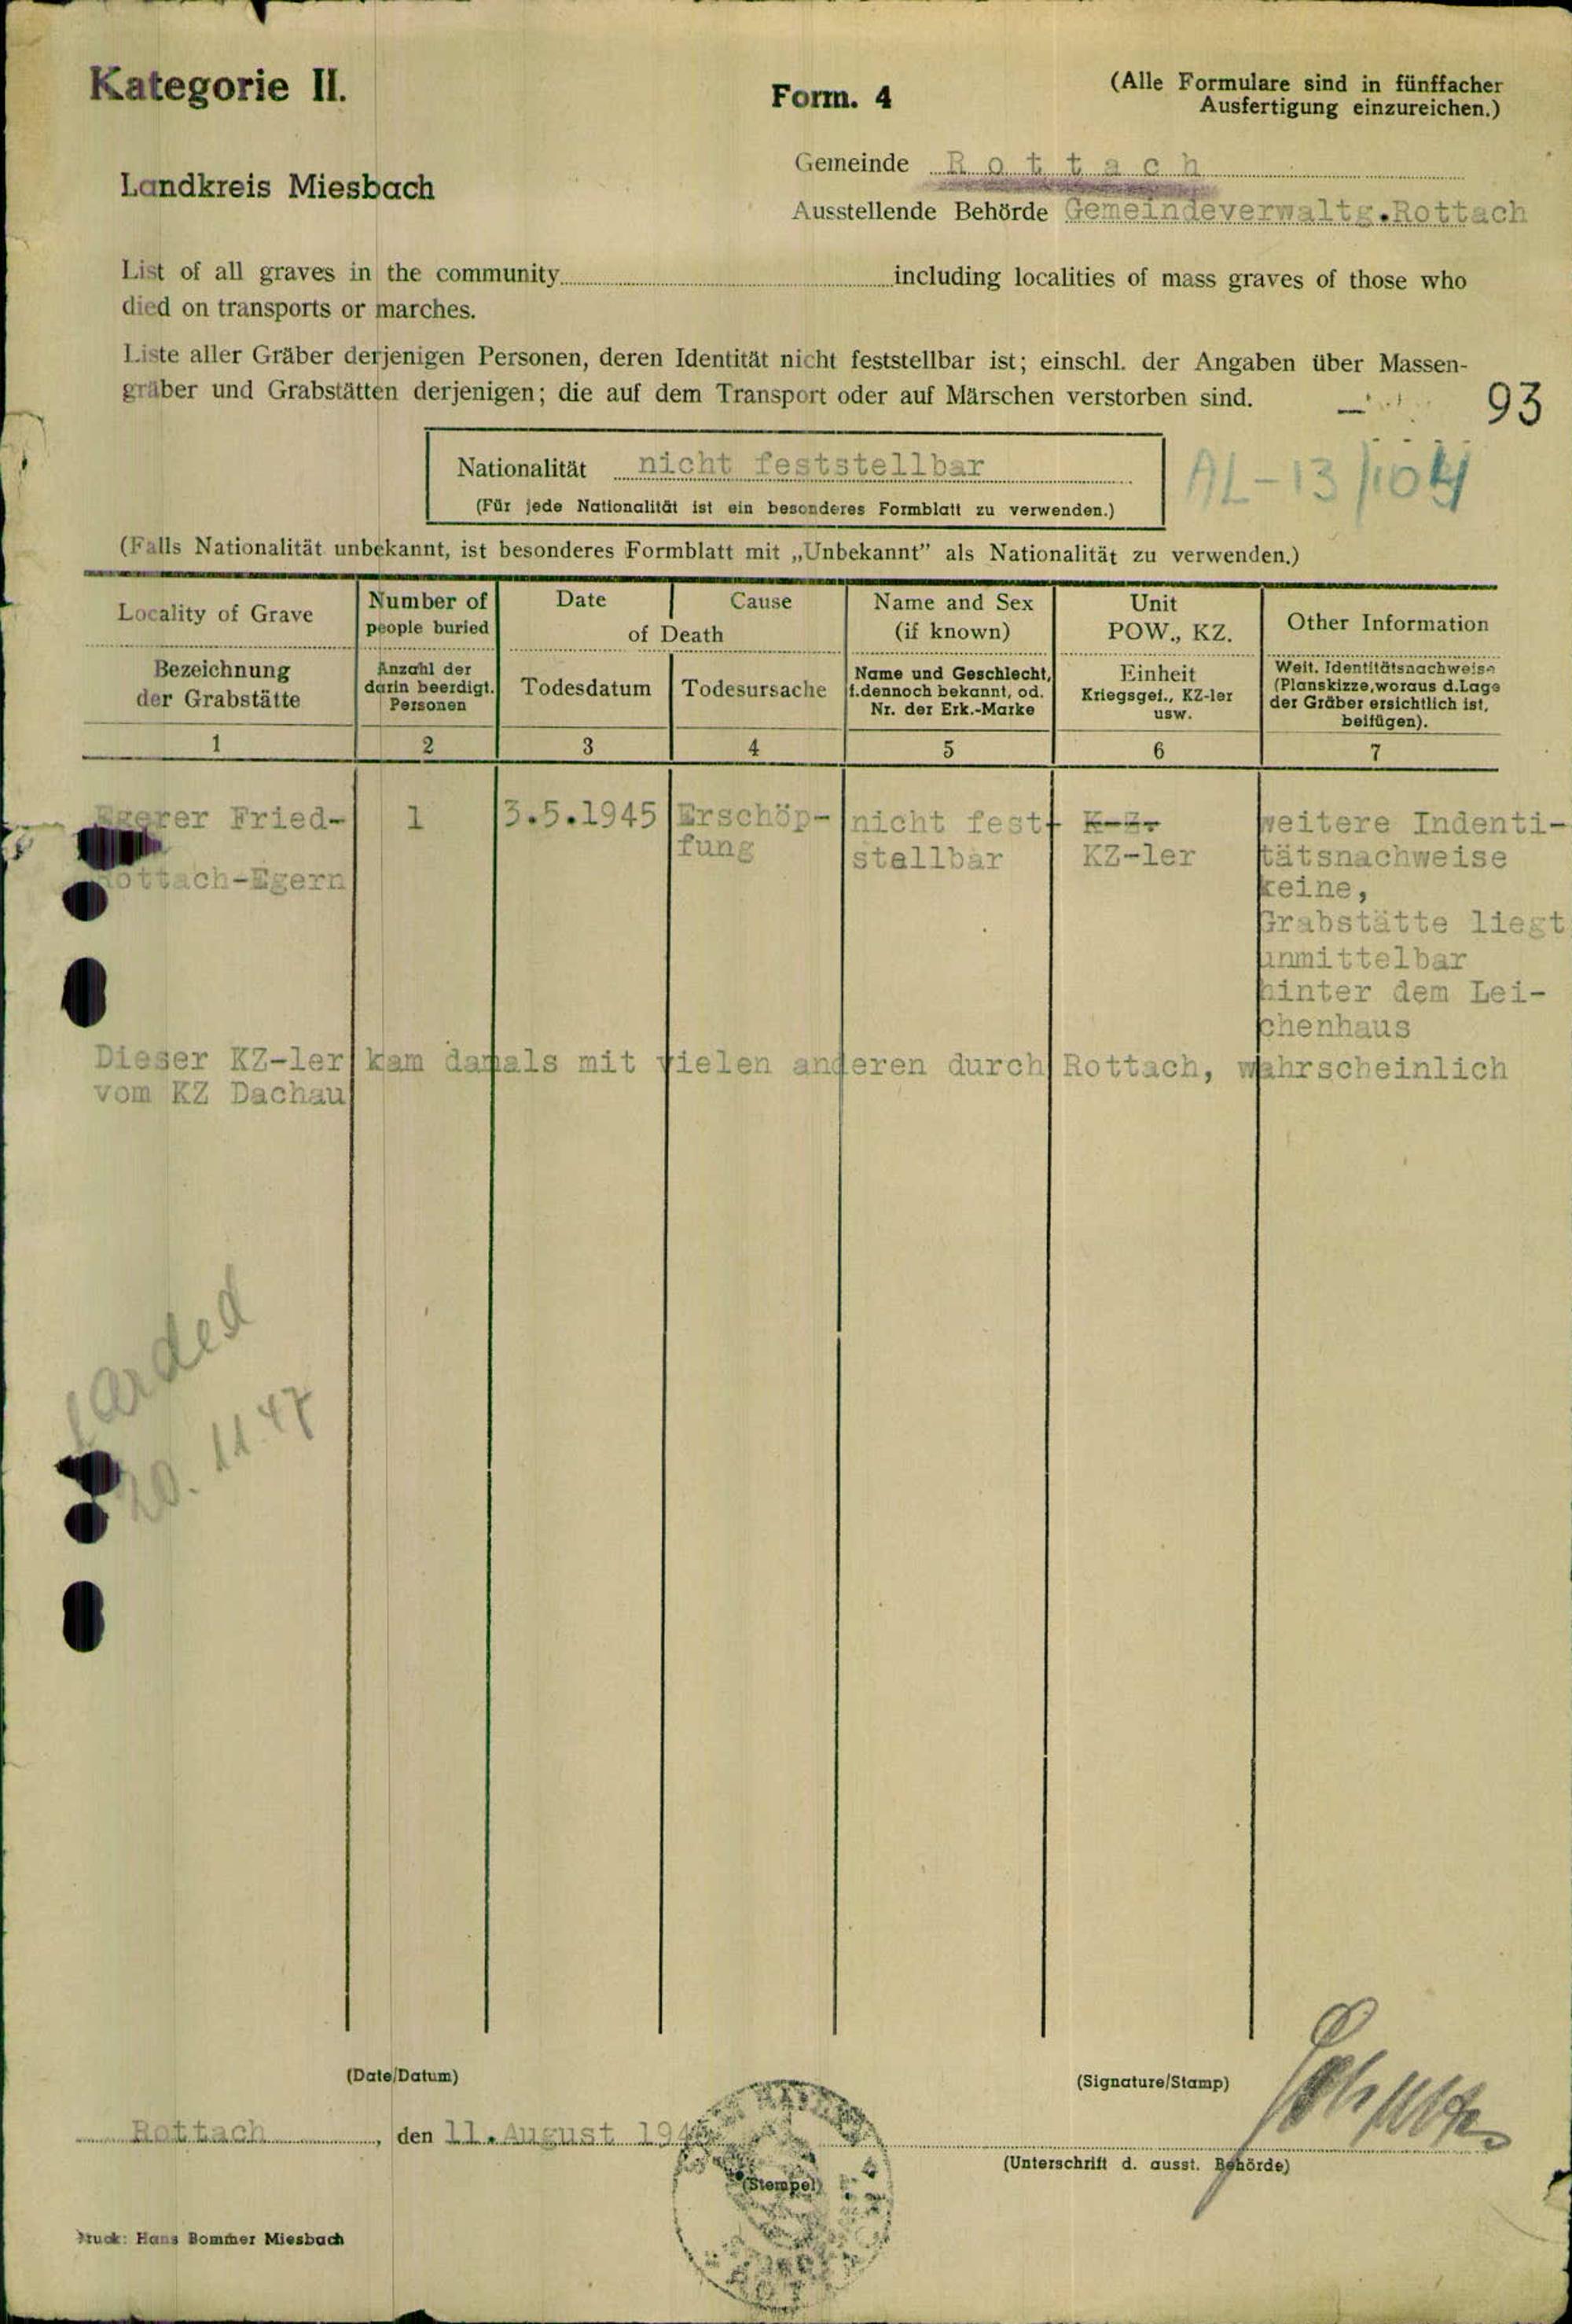 Kategorie II.
Form. 4
(Alle Formulare sind in fünffacher
Ausfertigung einzureichen.)
Landkreis Miesbach
Gemeinde Rottach
Ausstellende Behörde Gemeindeverwaltg.Rottach
List of all graves in the community including localities of mass graves of those who
died on transports or marches.
Liste aller Gräber derjenigen Personen, deren Identität nicht feststellbar ist; einschl. der Angaben über Massen-
gräber und Grabstätten derjenigen; die auf dem Transport oder auf Märschen verstorben sind.
93
Nationalität nicht feststellbar
(Für jede Nationalität ist ein besonderes Formblatt zu verwenden.)
AL-13/104
(Falls Nationalität unbekannt, ist besonderes Formblatt mit „Unbekannt” als Nationalität zu verwenden.)
Locality of Grave
Number of
people buried
Date Cause
of Death
Name and Sex
(if known)
Unit
POW., KZ.
Other Information
Bezeichnung
der Grabstätte
Anzahl der
darin beerdigt.
Personen
Todesdatum
Todesursache
Name und Geschlecht,
f.dennoch bekannt, od.
Nr. der Erk.-Marke
Einheit
Kriegsgef., KZ-ler
usw.
Weit. Identitätsnachweise
(Planskizze,woraus d.Lage
der Gräber ersichtlich ist,
beifügen).
1 2 3 4 5 6 7
Egerer Fried-
Rottach-Egern
1
3.5.1945
Erschöp-
fung
nicht fest-
stellbar
K-Z.
KZ-ler
weitere Indenti-
tätsnachweise
keine,
Grabstätte liegt
unmittelbar
hinter dem Lei-
chenhaus
Dieser KZ-ler kam damals mit vielen anderen durch Rottach, wahrscheinlich
vom KZ Dachau
carded
20. 11 47
(Date/Datum)
(Signature/Stamp)
Rottach, den 11. August 194
(Stempel)
(Unterschrift d. ausst. Behörde)
Druck: Hans Bommer Miesbach